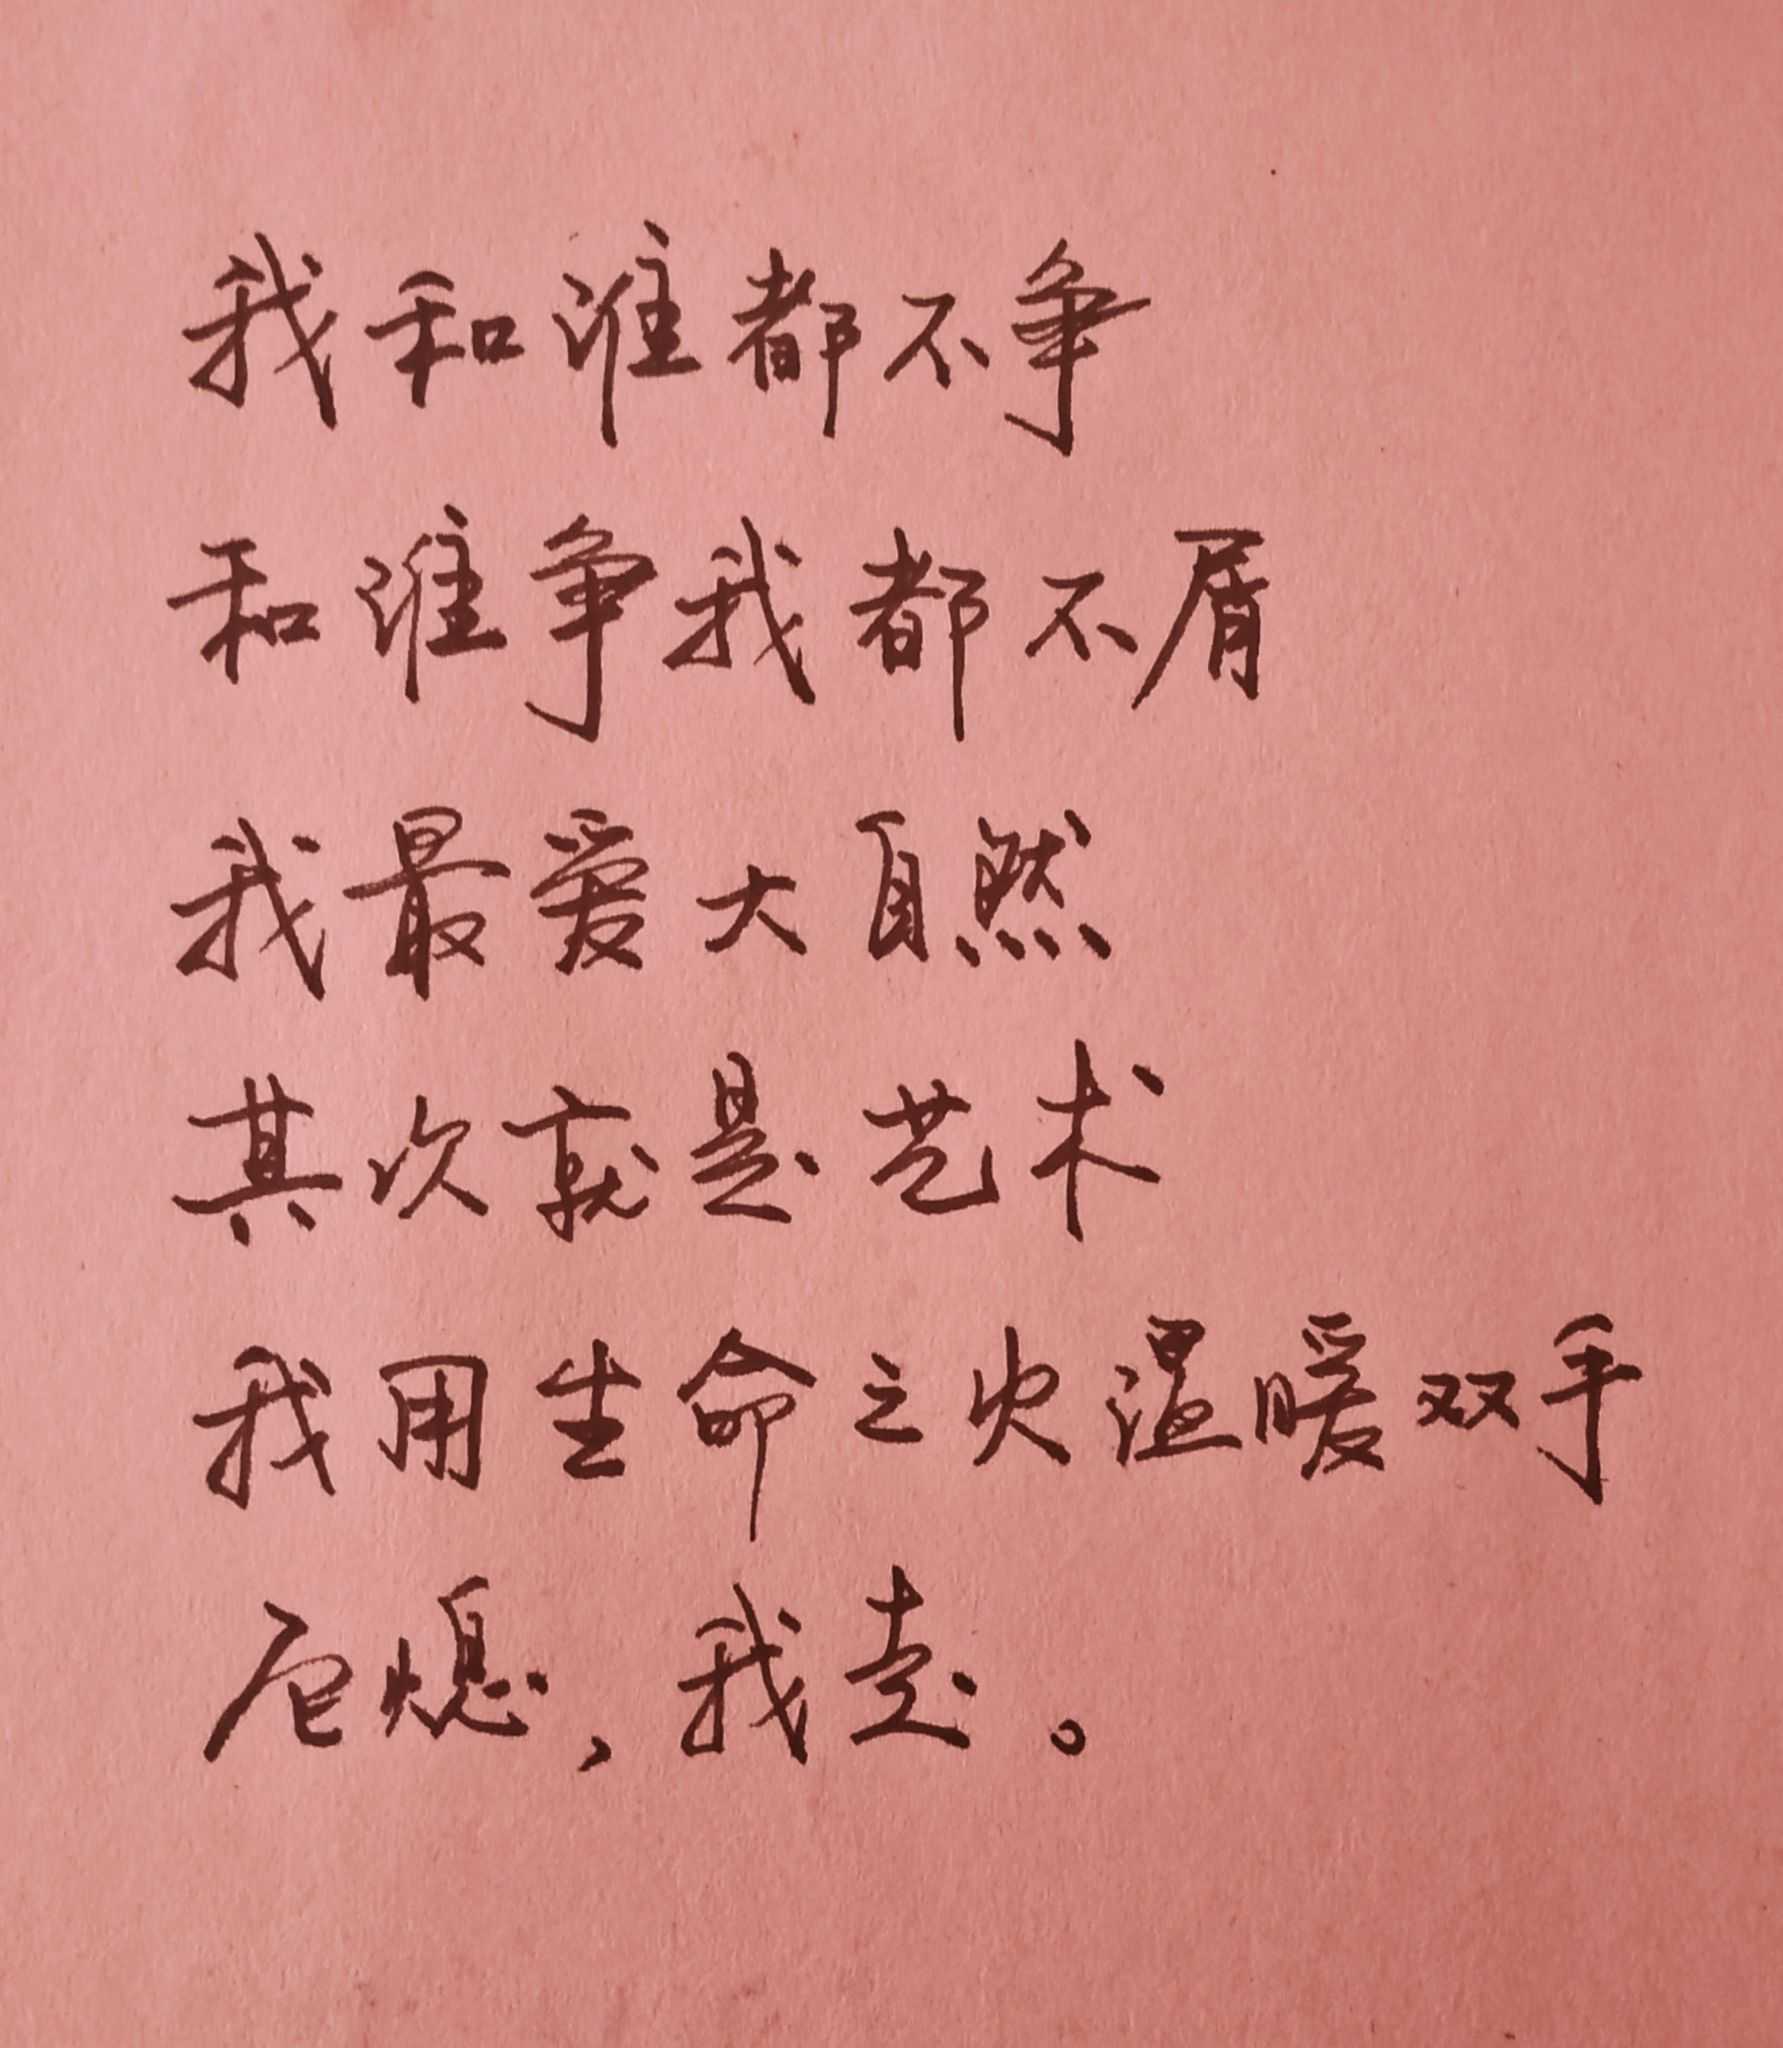 我和谁都不争
和谁争我都不屑
我最爱大自然
其次就是艺术
我用生命之火温暖双手
后熄，我走。